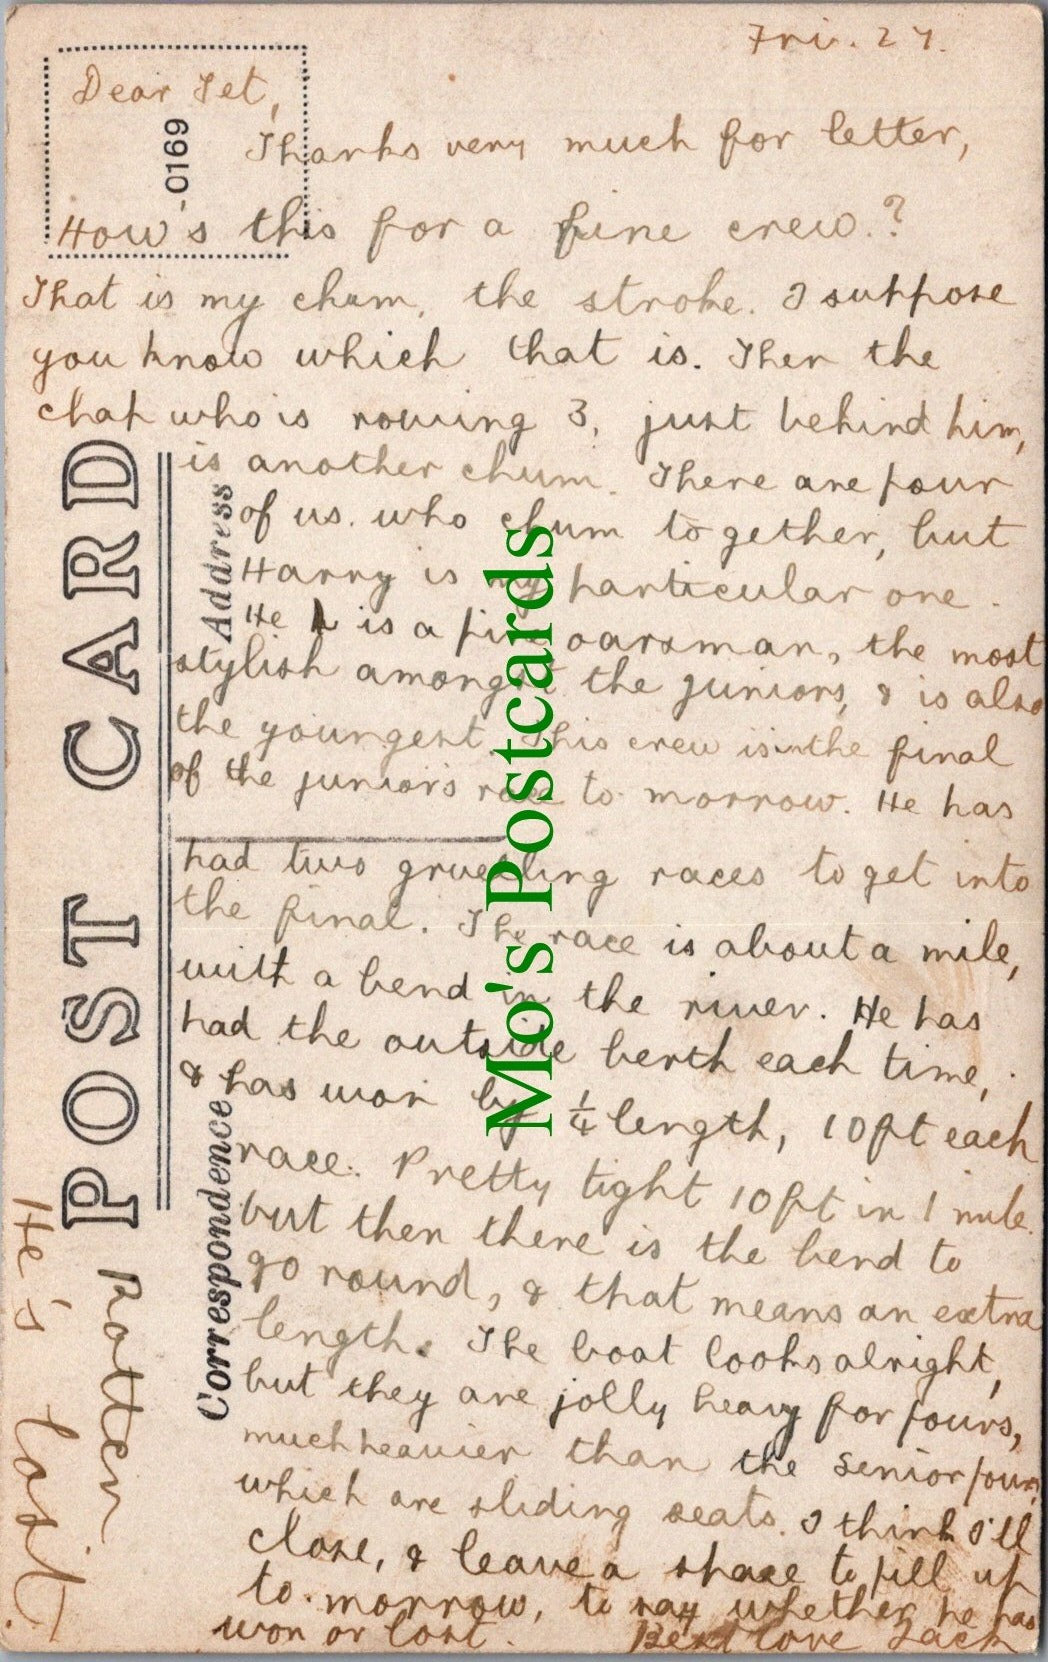 Fri. 27.
Dear Jet,
Thanks very much for letter,
How's this for a fine crew.?
That is my chum, the stroke. I suppose
you know which that is. Then the
chap who is rowing 3, just behind him,
is another chum. There are four
of us. who chum together, but
Harry is my particular one.
He is a fine oarsman, the most
stylish amongst the juniors, & is also
the youngest. This crew is in the final
of the juniors race to-morrow. He has
had two gruelling races to get into
the final. The race is about a mile,
with a bend in the river. He has
had the outside berth each time,
& has won by ¼ length, 10ft each
race. Pretty tight 10ft in 1 mile.
but then there is the bend to
go round, & that means an extra
length. The boat looks alright,
but they are jolly heavy for fours,
much heavier than the senior four,
which are sliding seats. I think I'll
close, & leave a space to fill up
to-morrow, to say whether he has
won or lost. Best love Jack
He's lost.
Rotten
POST CARD
Address
Correspondence
-0169
Mo's Postcards